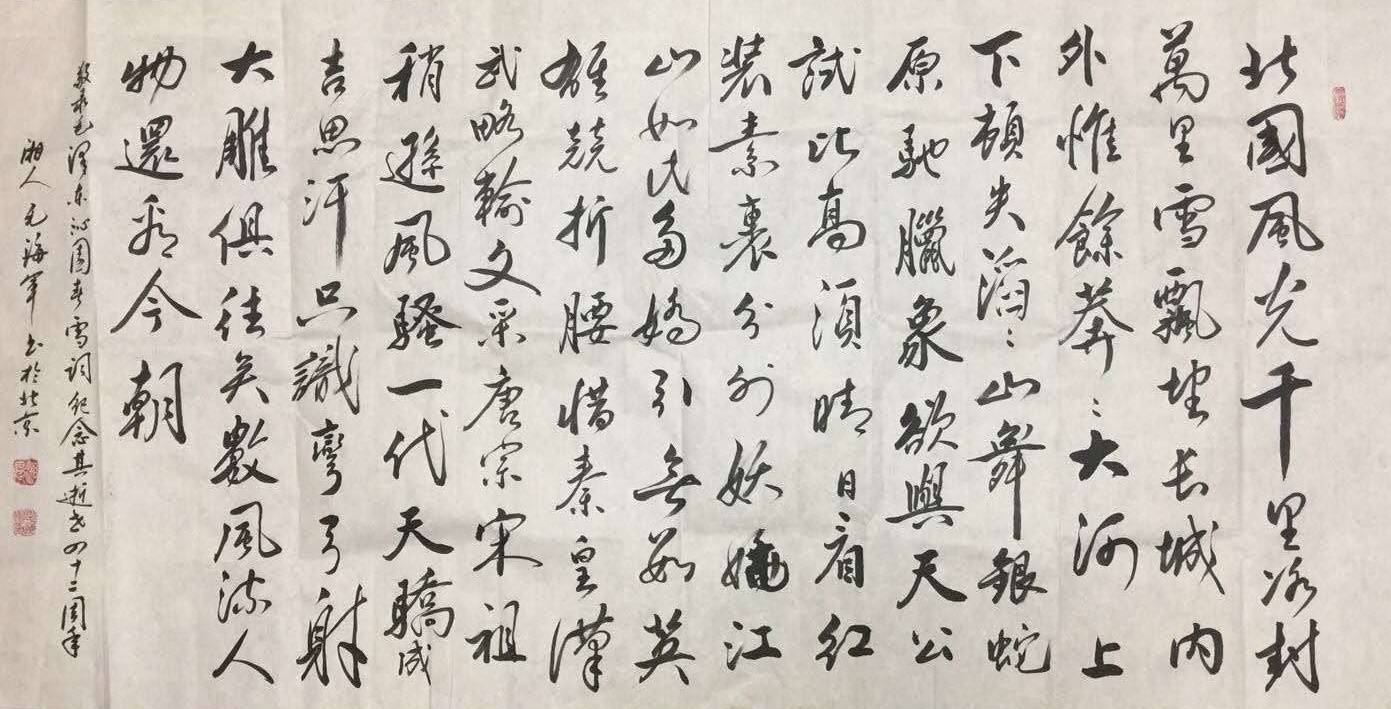 北國風光千里冰封
萬里雪飄望长城内
外惟餘莽々大河上
下頓失滔々山舞銀蛇
原馳臘象欲與天公
試比高須晴日看红
装素裹分外妖嬈江
山如此多嬌引無數英
雄競折腰惜秦皇漢
武略輸文采唐宗宋祖
稍遜風騷一代天驕成
吉思汗只識彎弓射
大雕俱往矣數風流人
物還看今朝
敬录毛澤东沁園春雪詞纪念其逝世四十二周年
湘人毛海军书於北京